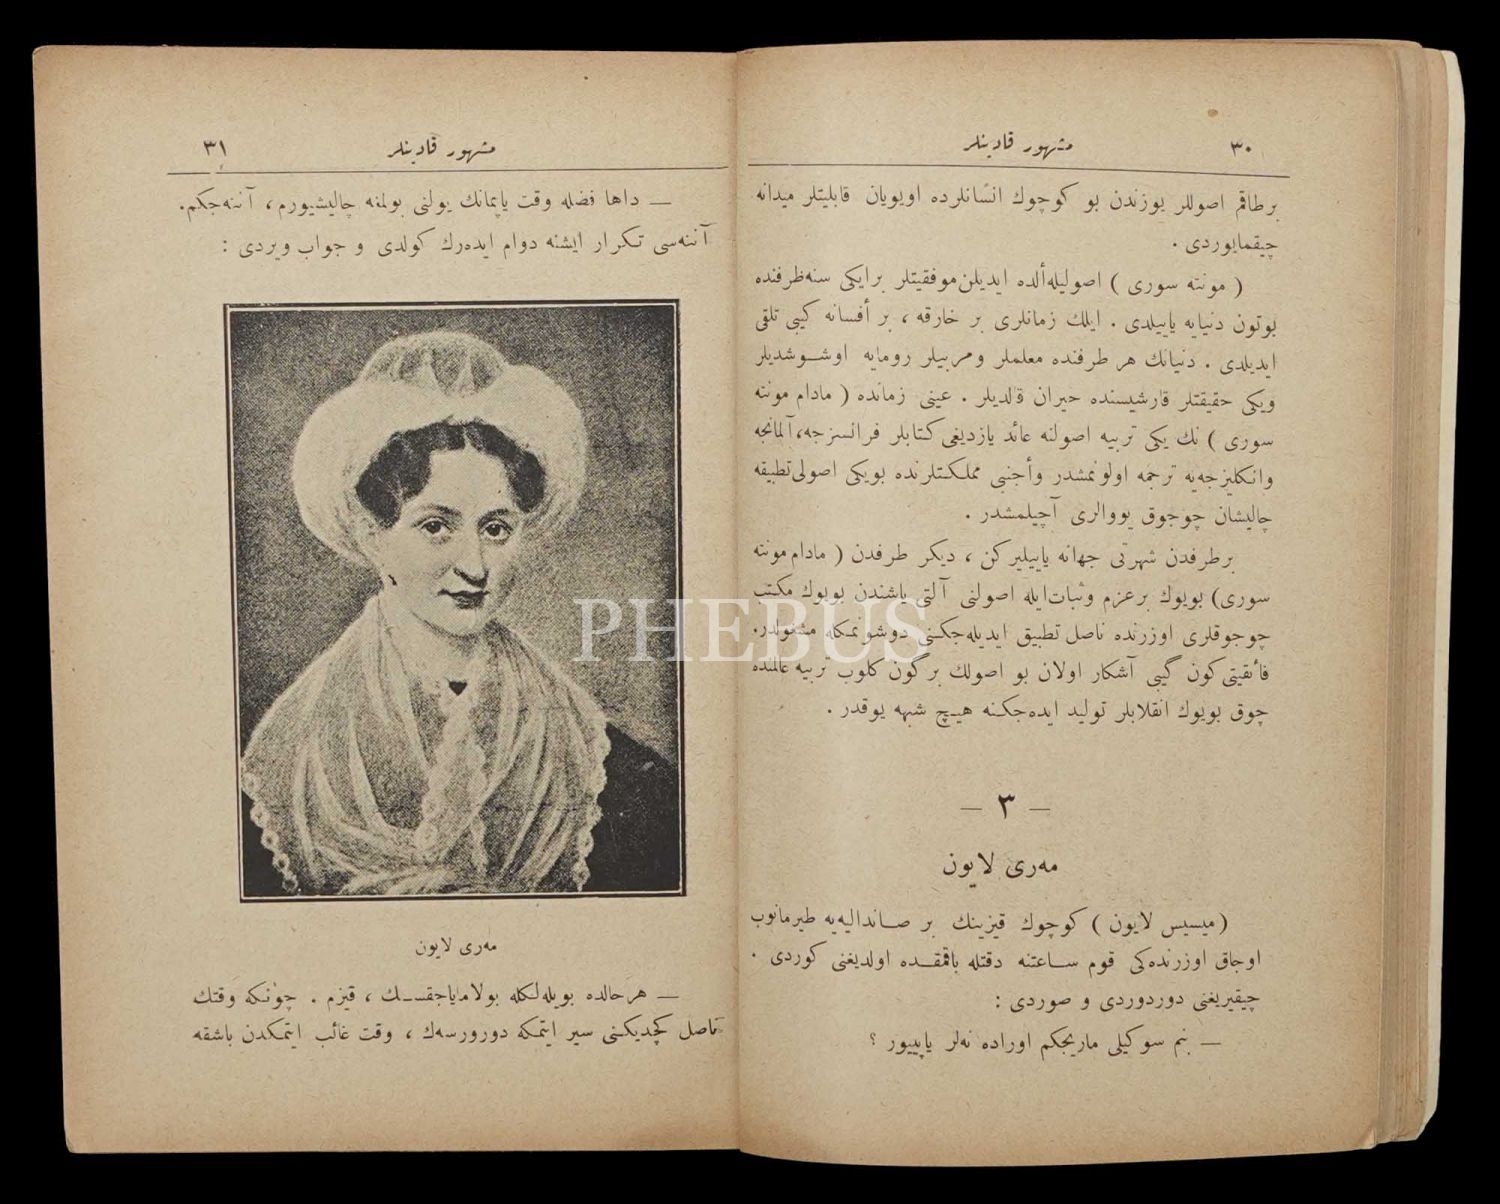 ٣٠
مشهور قادینلر
برطاقم اصوللر یوزندن بو كوچوك انسانلرده اویویان قابلیتلر میدانه
چیقمایوردی .
( مونته سوری ) اصولیله ألده ایدیلن موفقیتلر برایكی سنه ظرفنده
بوتون دنیایه یاییلدی . ایلك زمانلری بر خارقه ، بر أفسانه كیبی تلقی
ایدیلدی . دنیانك هر طرفنده معلملر ومربیلر رومایه اوشوشدیلر
ویكی حقیقتلر قارشیسنده حیران قالدیلر . عینی زمانده ( مادام مونته
سوری ) نك یكی تربیه اصولنه عائد یازدیغی كتابلر فرانسزجه، آلمانجه
وانكلیزجه‌یه ترجمه اولونمشدر وأجنبی مملكتلرنده بویكی اصولی تطبیقه
چالیشان چوجوق یووالری آچیلمشدر .
برطرفدن شهرتی جهانه یاییلیركن ، دیكر طرفدن ( مادام مونته
سوری) بویوك برعزم وثبات ایله اصولنی آلتی یاشندن بویوك مكتب
چوجوقلری اوزرنده ناصل تطبیق ایدیله‌جكنی دوشونمكله مشغولدر.
فائقیتی كون گیبی آشكار اولان بو اصولك برگون كلوب تربیه عالمنده
چوق بویوك انقلابلر تولید ایده‌جكنه هیچ شبهه یوقدر .
— ٣ —
مه‌ری لایون
(میسیس لایون ) كوچوك قیزینك بر صاندالیه‌یه طیرمانوب
اوجاق اوزرنده‌كی قوم ساعتنه دقتله باقمقده اولدیغنی كوردی .
چیقیریغنی دوردوردی و صوردی :
— بنم سوكیلی ماریجكم اوراده نه‌لر یاپییور ؟
٣١
مشهور قادینلر
— داها فضله وقت یاپمانك یولنی بولمغه چالیشیورم ، آننه‌جكم.
آننه‌سی تكرار ایشنه دوام ایده‌رك كولدی و جواب ویردی :
مه‌ری لایون
— هرحالده بویله‌لكله بولامایاجقسك ، قیزم . چونكه وقتك
ناصل كچدیكنی سیر ایتمكه دورورسه‌ك ، وقت غائب ایتمكدن باشقه
PHEBUS